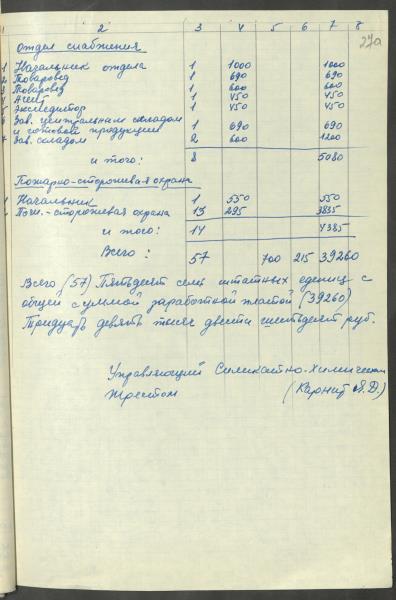 1 2 3 4 5 6 7 8
27а
Отдел снабжения
1 Начальник отдела 1 1000 1000
2 Товаровед 1 690 690
3 Товаровед 1 600 600
4 Агент 1 450 450
5 Экспедитор 1 450 450
6 Зав. центральным складом
и готовой продукции 1 690 690
7 Зав. складом 2 600 1200
и того: 8 5080
Пожарно-сторожевая охрана
1 Начальник 1 550 550
2 Пож.-сторожевая охрана 13 295 3835
и того: 14 4385
Всего: 57 700 215 39260
Всего (57) Пятьдесят семь штатных единиц с
общей суммой заработной платой (39260)
Тридцать девять тысяч двести шестьдесят руб.
Управляющий Силикатно-Химическим
трестом (Карнит Я.Д.)